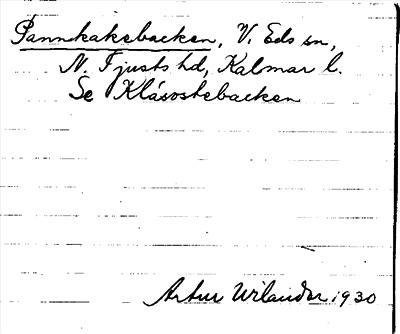 Pannkakebacken, V. Eds sn,
N. Tjusts hd, Kalmar l.
Se Klåsostebacken
Artur Wilander 1930